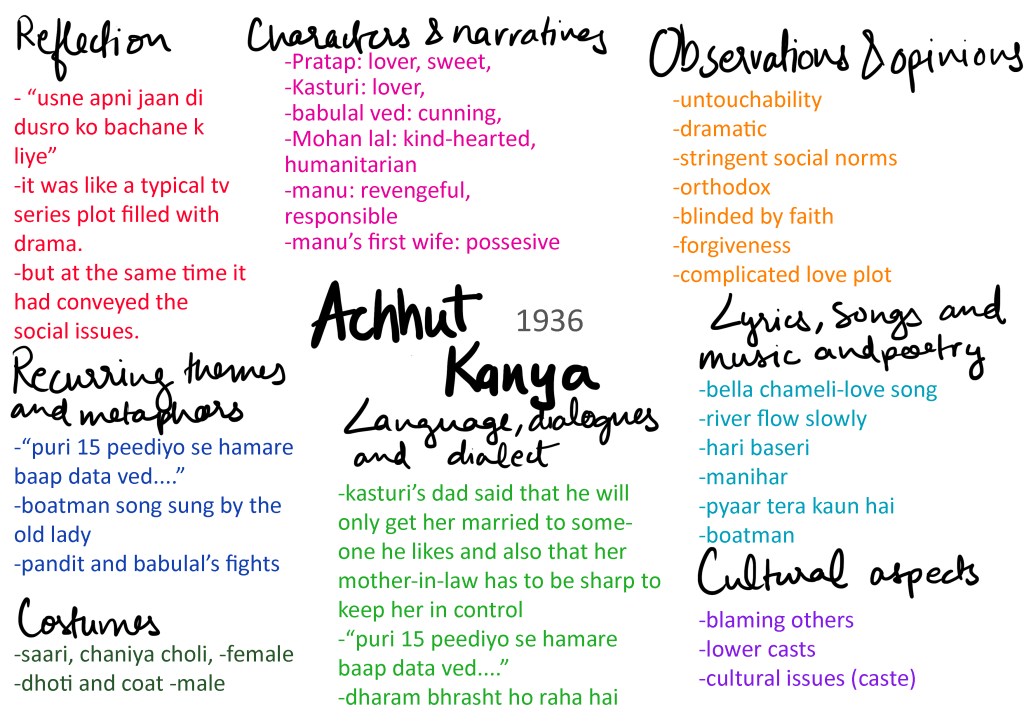 Reflection
- “usne apni jaan di
dusro ko bachane k
liye”
-it was like a typical tv
series plot filled with
drama.
-but at the same time it
had conveyed the
social issues.
Characters & narratives
-Pratap: lover, sweet,
-Kasturi: lover,
-babulal ved: cunning,
-Mohan lal: kind-hearted,
humanitarian
-manu: revengeful,
responsible
-manu’s first wife: possesive
Observations & opinions
-untouchability
-dramatic
-stringent social norms
-orthodox
-blinded by faith
-forgiveness
-complicated love plot
Achhut 1936
Kanya
Recurring themes
and metaphors
-“puri 15 peediyo se hamare
baap data ved....”
-boatman song sung by the
old lady
-pandit and babulal’s fights
Language, dialogues
and dialect
-kasturi’s dad said that he will
only get her married to some-
one he likes and also that her
mother-in-law has to be sharp to
keep her in control
-“puri 15 peediyo se hamare
baap data ved....”
-dharam bhrasht ho raha hai
Lyrics, songs and
music and poetry
-bella chameli-love song
-river flow slowly
-hari baseri
-manihar
-pyaar tera kaun hai
-boatman
Costumes
-saari, chaniya choli, -female
-dhoti and coat -male
Cultural aspects
-blaming others
-lower casts
-cultural issues (caste)